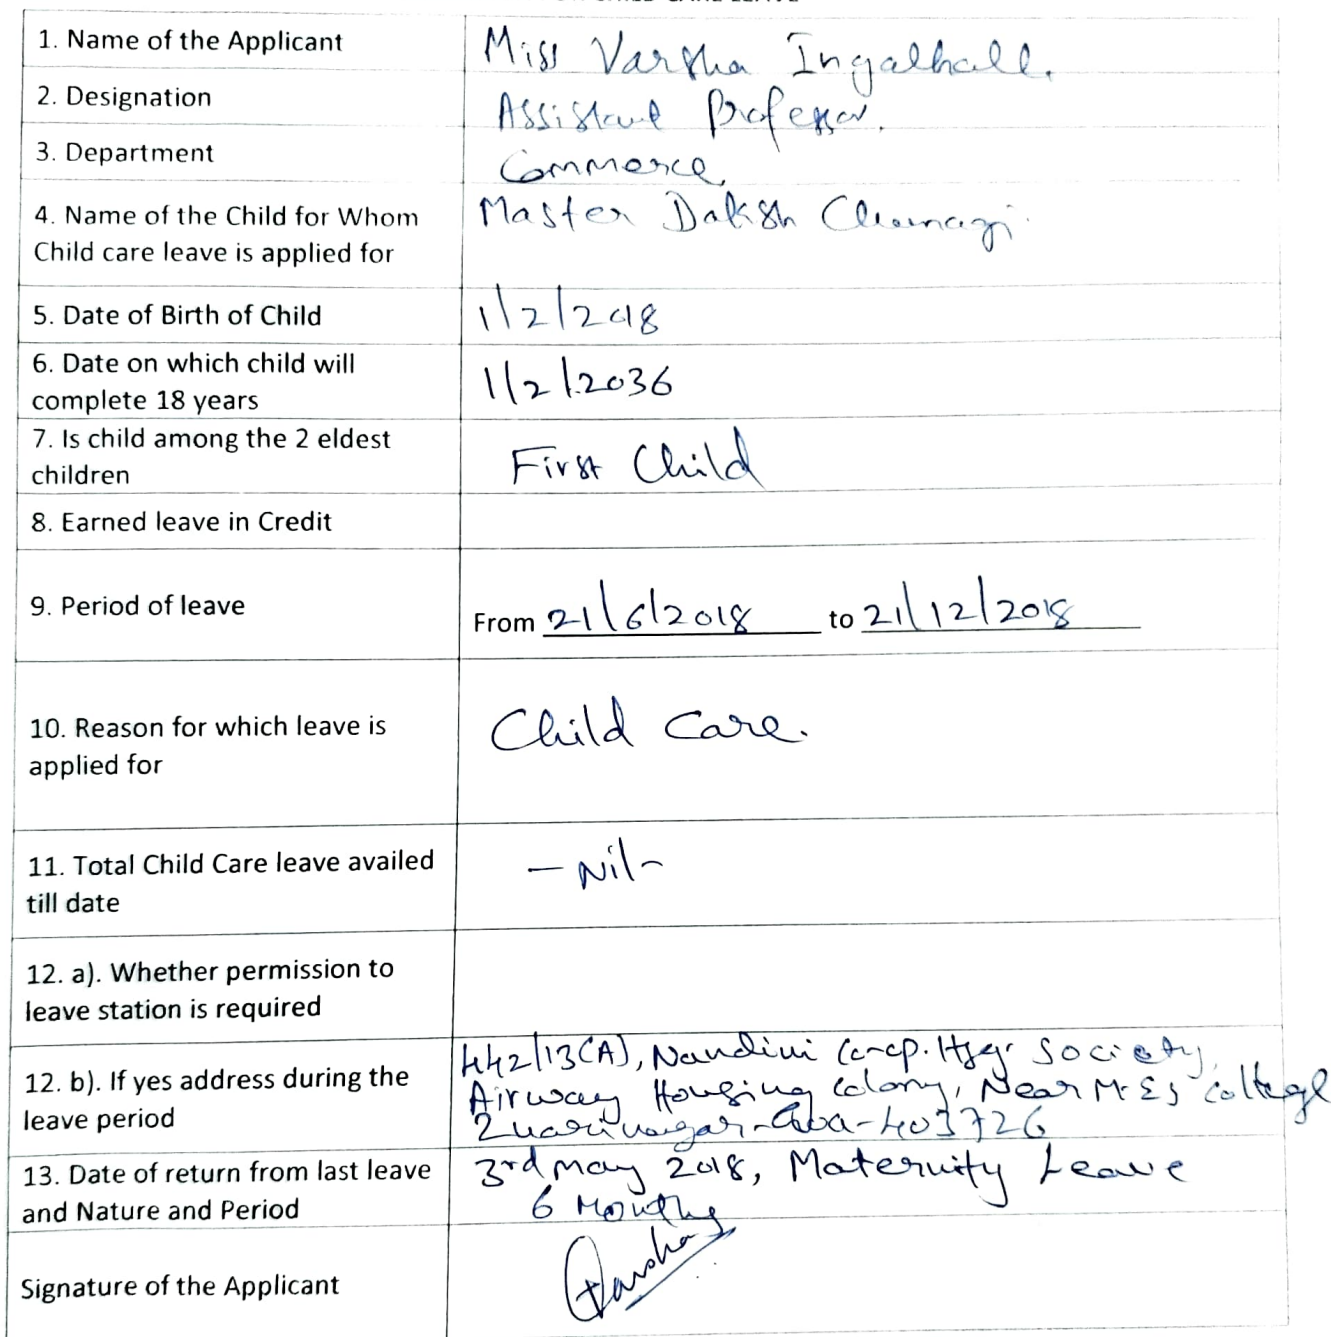 1. Name of the Applicant
Miss Varsha Ingalhall.
2. Designation
Assistant Professor.
3. Department
Commerce
4. Name of the Child for Whom
Child care leave is applied for
Master Daksh
5. Date of Birth of Child
1/2/2018
6. Date on which child will
complete 18 years
1/2/2036
7. Is child among the 2 eldest
children
First Child
8. Earned leave in Credit
9. Period of leave
From 21/6/2018 to 21/12/2018
10. Reason for which leave is
applied for
Child Care.
11. Total Child Care leave availed
till date
- Nil -
12. a). Whether permission to
leave station is required
12. b). If yes address during the
leave period
442/13(A), Nandini Co-op. Hsg. Society,
Airway Housing Colony, Near M.E.S College
Zuarinagar-Goa-403726
13. Date of return from last leave
and Nature and Period
3rd May 2018, Maternity Leave
6 Months
Signature of the Applicant
Varsha